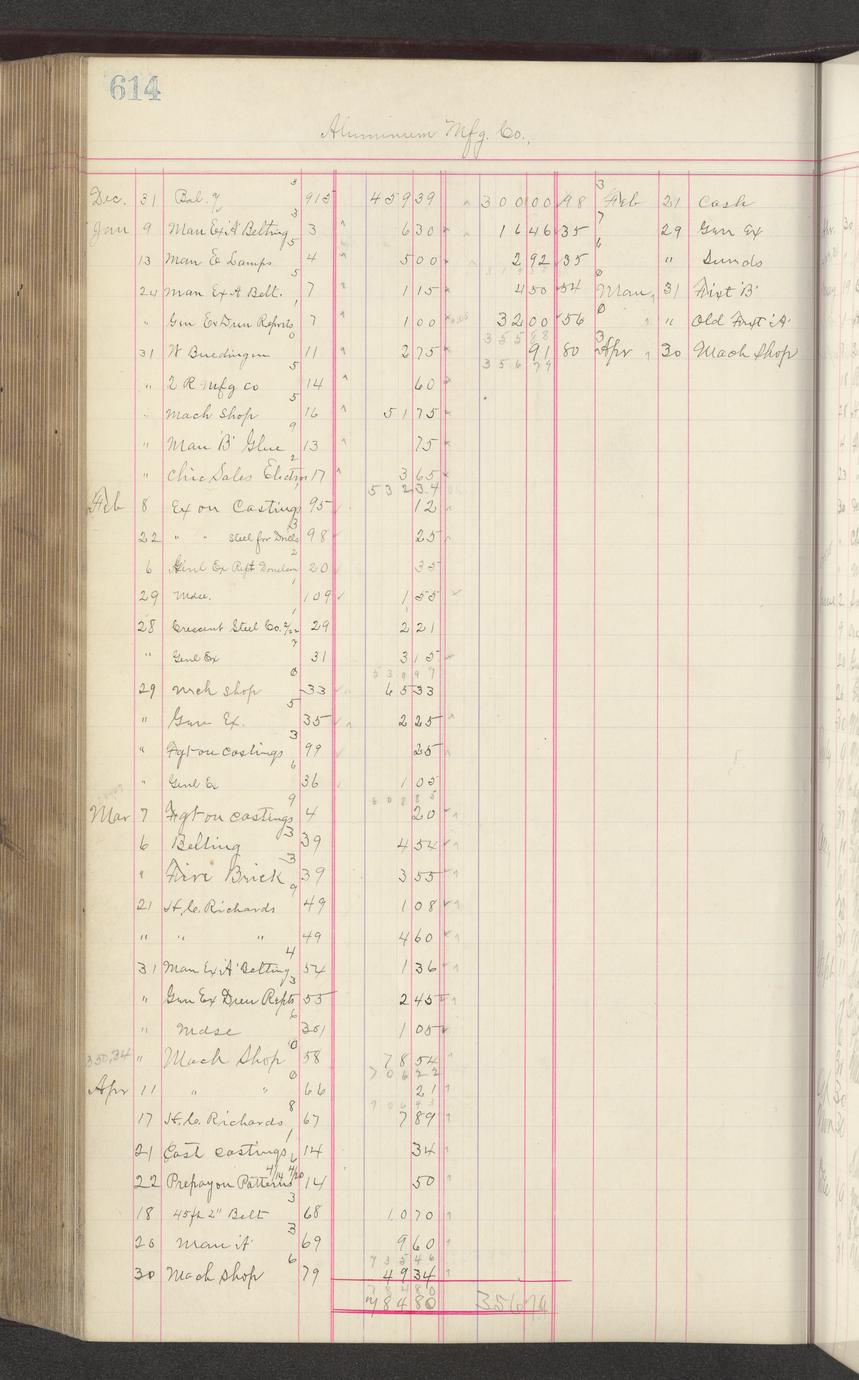 614
Aluminium Mfg. Co.,
Dec. 31 Bal. 915 459 39 300 00 98 Feb 21 Cash
Jan 9 Man Ex 'A' Belting 3 6 30 16 46 35 29 Gen Ex
13 Man E Lamps 4 5 00 2 92 35 " Sunds
24 Man Ex A Belt. 7 1 15 4 50 54 Mar 31 First 'B'
" Gen Ex Drun Reports 7 1 00 32 00 56 " Old First 'A'
355 88
31 W Buedingen 11 2 75 91 80 Apr 30 Mach Shop
356 79
" 2 R Mfg Co 14 60
" Mach Shop 16 51 75
" Man 'B' Glue 13 75
" Chic Sales Electr 17 3 65
532 34
Feb 8 Ex on Castings 95 12
22 " " Steel for Drills 98 25
6 Genl Ex Rept 20 35
29 Mdse. 109 1 55
28 Crescent Steel Co. 29 2 21
" Genl Ex 31 3 15
539 97
29 Mch Shop 33 65 33
" Gen Ex. 35 2 25
" Fgt on castings 99 25
" Genl Ex 36 1 05
608 85
Mar 7 Frgt on castings 4 20
6 Belting 39 4 54
" Fire Brick 39 3 55
21 H. C. Richards 49 1 08
" " " 49 4 60
31 Man Ex 'A' Belting 54 1 36
" Gen Ex Drun Repts 55 2 45
" Mdse 301 1 05
350.34 " Mach Shop 58 78 54
706 22
Apr 11 " " 66 21
706 43
17 H. C. Richards 67 7 89
21 Cast castings 14 34
22 Prepay on Patterns 4/14 4/20 14 50
18 45 ft 2" Belt 68 10 70
26 Man 'A' 69 9 60
735 46
30 Mach Shop 79 49 34
784 80
784 80 356 79